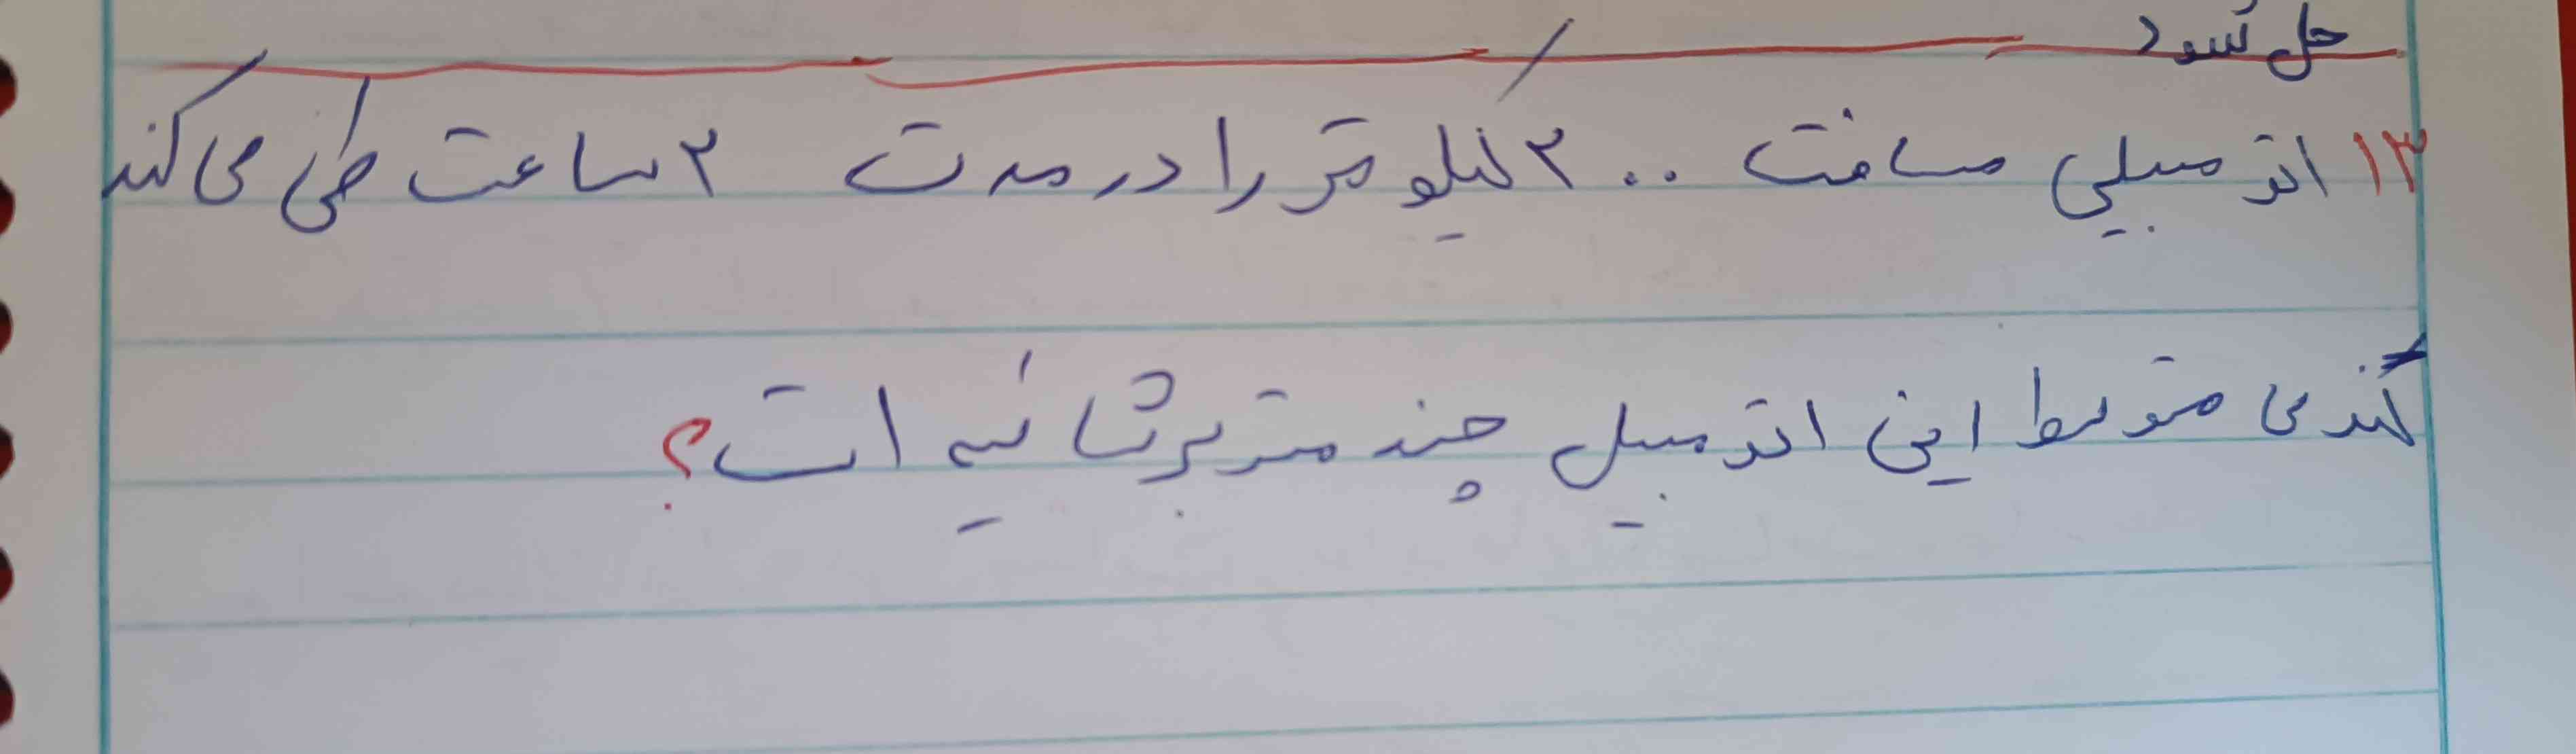 حل شود
۱۳ اتومبیلی مسافت ۲۰۰ کیلومتر را در مدت ۲ ساعت طی می کند
تندی متوسط این اتومبیل چند متر بر ثانیه است؟